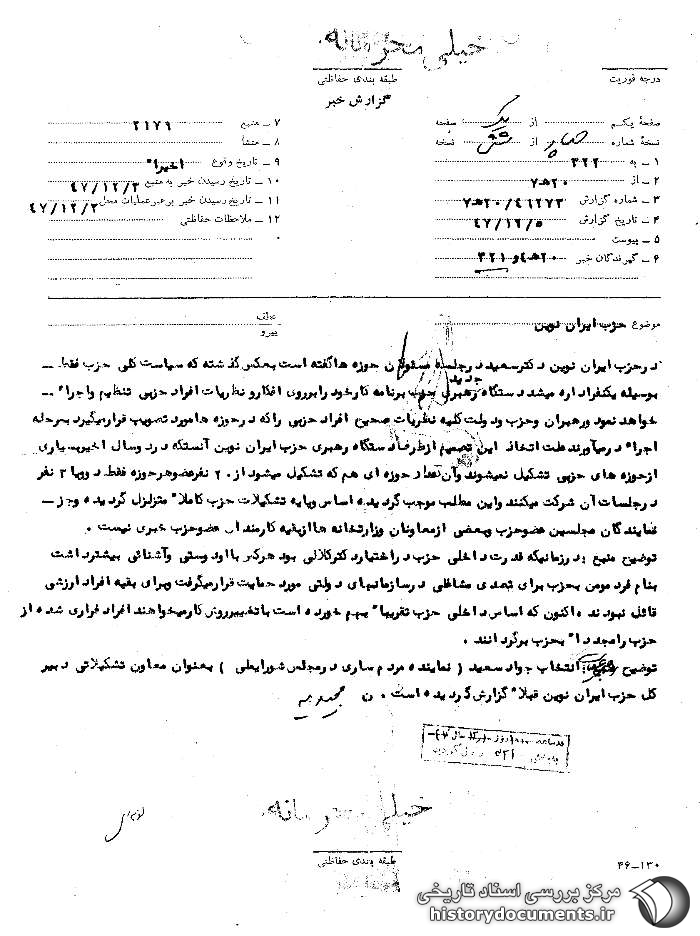 خیلی محرمانه
درجه فوریت
طبقه بندی حفاظتی
گزارش خبر
صفحهٔ یکم از یک صفحه
نسخهٔ شماره چهار از شش نسخه
۱ ــ به ۳۲۲
۲ ــ از ۲۰ﻫ۷
۳ ــ شماره گزارش ۲۰ﻫ۷/۴۶۲۷۳
۴ ــ تاریخ گزارش ۴۷/۱۲/۵
۵ ــ پیوست
۶ ــ گیرندگان خبر ۲۰ﻫ۴ و ۳۲۱
۷ ــ منبع ۲۱۷۹
۸ ــ منشأ
۹ ــ تاریخ وقوع اخیرا"
۱۰ ــ تاریخ رسیدن خبر به منبع ۴۷/۱۲/۳
۱۱ ــ تاریخ رسیدن خبر برهبرعملیات محل ۴۷/۱۲/۳
۱۲ ــ ملاحظات حفاظتی
موضوع حزب ایران نوین
عطف
پیرو
درحزب ایران نوین دکترسعید درجلسه مسئولان حوزه ها گفته است بعکس گذشته که سیاست کلی حزب فقط ــ
بوسیله یکنفراداره میشد دستگاه رهبری جدید حزب برنامه کارخود رابرروی افکارو نظریات افراد حزبی تنظیم واجرا" ــ
خواهد نمود ورهبران وحزب ودولت کلیه نظریات صحیح افراد حزبی راکه درحوزه هامورد تصویب قرارمیگیرد بمرحله
اجرا" درمیآورند علت اتخاذ این تصمیم ازطرف دستگاه رهبری حزب ایران نوین آنستکه درد وسال اخیربسیاری
ازحوزه های حزبی تشکیل نمیشوند وآن تعداد حوزه ای هم که تشکیل میشود از ۲۰ نفرعضوهرحوزه فقط دو یا ۳ نفر
درجلسات آن شرکت میکنند واین مطلب موجب گردیده اساس وپایه تشکیلات حزب کاملا" متزلزل گردیده وجز ــ
نمایندگان مجلسین عضوحزب وبعضی ازمعاونان وزارتخانه ها ازبقیه کارمندان عضوحزب خبری نیست .
توضیح منبع : درزمانیکه قدرت داخلی حزب دراختیارد کترکلالی بود هرکس با اودوستی وآشنائی بیشترداشت
بنام فرد مومن بحزب برای تصدی مشاغلی درسازمانهای دولتی مورد حمایت قرارمیگرفت وبرای بقیه افراد ارزشی
قائل نبودند ه اکنون که اساس داخلی حزب تقریبا" بهم خورده است باتغییرروش کارمیخواهند افراد فراری شده از
حزب رامجددا" بحزب برگردانند .
توضیح : انتخاب جواد سعید ( نماینده مردم ساری درمجلس شورایملی ) بعنوان معاون تشکیلاتی دبیر
کل حزب ایران نوین قبلا" گزارش گردیده است . ن
خیلی محرمانه
طبقه بندی حفاظتی
۴۶ــ۱۳۰
مرکز بررسی اسناد تاریخی
historydocuments.ir